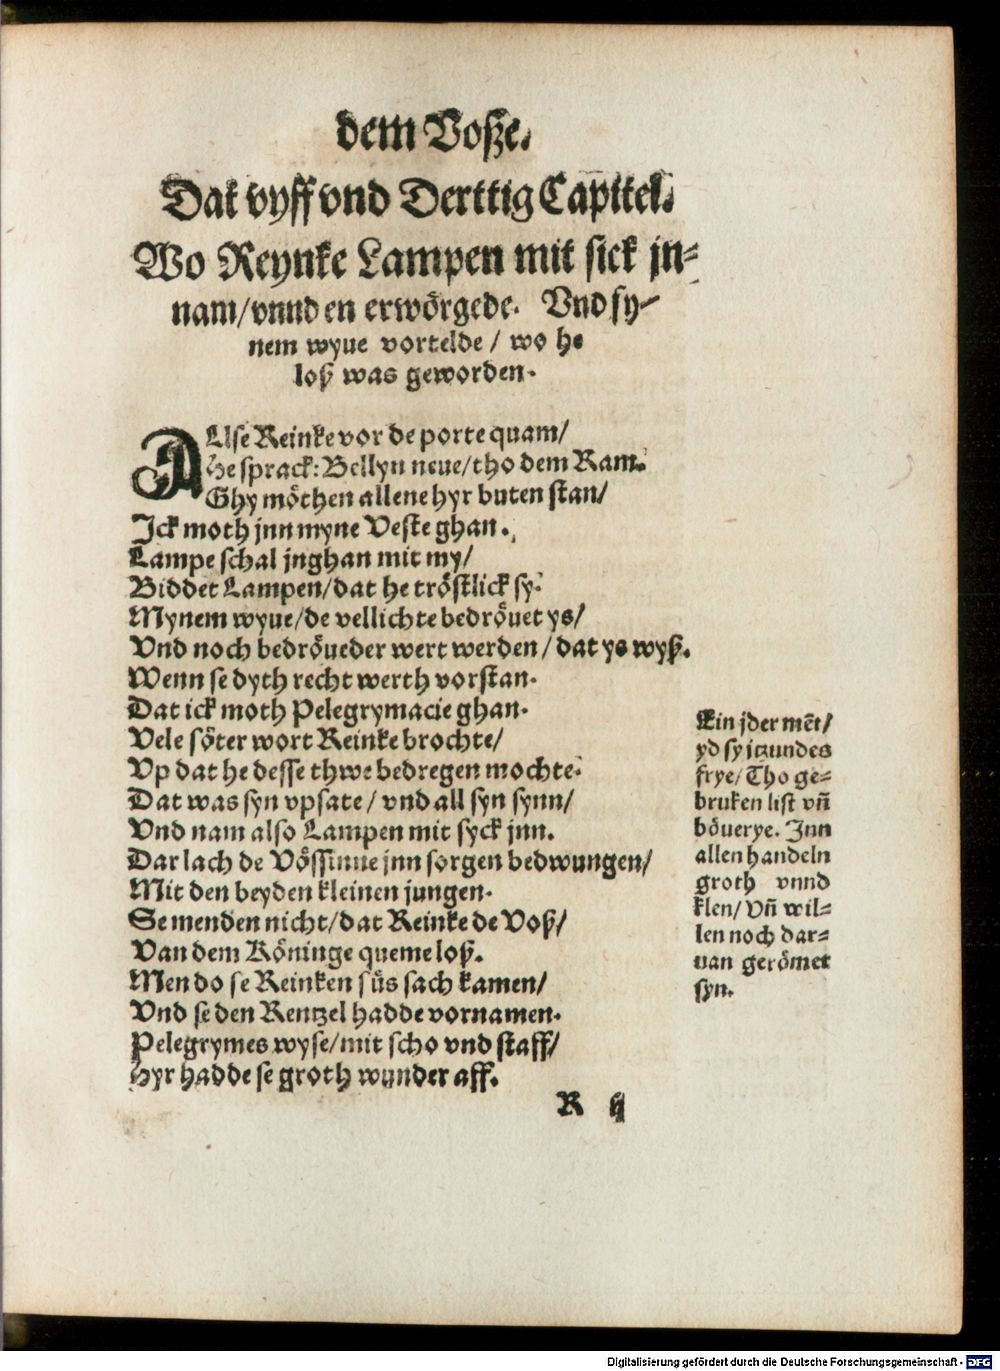 dem Voßze.
Dat vyff vnd Derttig Capittel.
Wo Reynke Lampen mit sick jn⸗
nam/vnnd en erwörgede. Vnd sy⸗
nem wyue vortelde / wo he
loß was geworden.
ALse Reinke vor de porte quam/
He sprack: Bellyn neue/tho dem Ram.
Ghy möthen allene hyr buten stan/
Jck moth jnn myne Veste ghan.
Lampe schal jnghan mit my/
Biddet Lampen/dat he tröstlick sy.
Mynem wyue/de vellichte bedröuet ys/
Vnd noch bedröueder wert werden/dat ys wyß.
Wenn se dyth recht werth vorstan.
Dat ick moth Pelegrymacie ghan.
Vele söter wort Reinke brochte/
Vp dat he desse thwe bedregen mochte.
Dat was syn vpsate / vnd all syn synn/
Vnd nam also Lampen mit syck jnn.
Dar lach de Vössinne jnn sorgen bedwungen/
Mit den beyden kleinen jungen.
Se menden nicht/dat Reinke de Voß/
Van dem Köninge queme loß.
Men do se Reinken süs sach kamen/
Vnd se den Rentzel hadde vornamen.
Pelegrymes wyse/mit scho vnd staff/
Hyr hadde se groth wunder aff.
Ein jder mēt/
yd sy itzundes
frye/Tho ge⸗
bruken list vñ
böuerye. Jnn
allen handeln
groth vnnd
klen/Vñ wil⸗
len noch dar⸗
uan gerömet
syn.
R ij
Digitalisierung gefördert durch die Deutsche Forschungsgemeinschaft - DFG